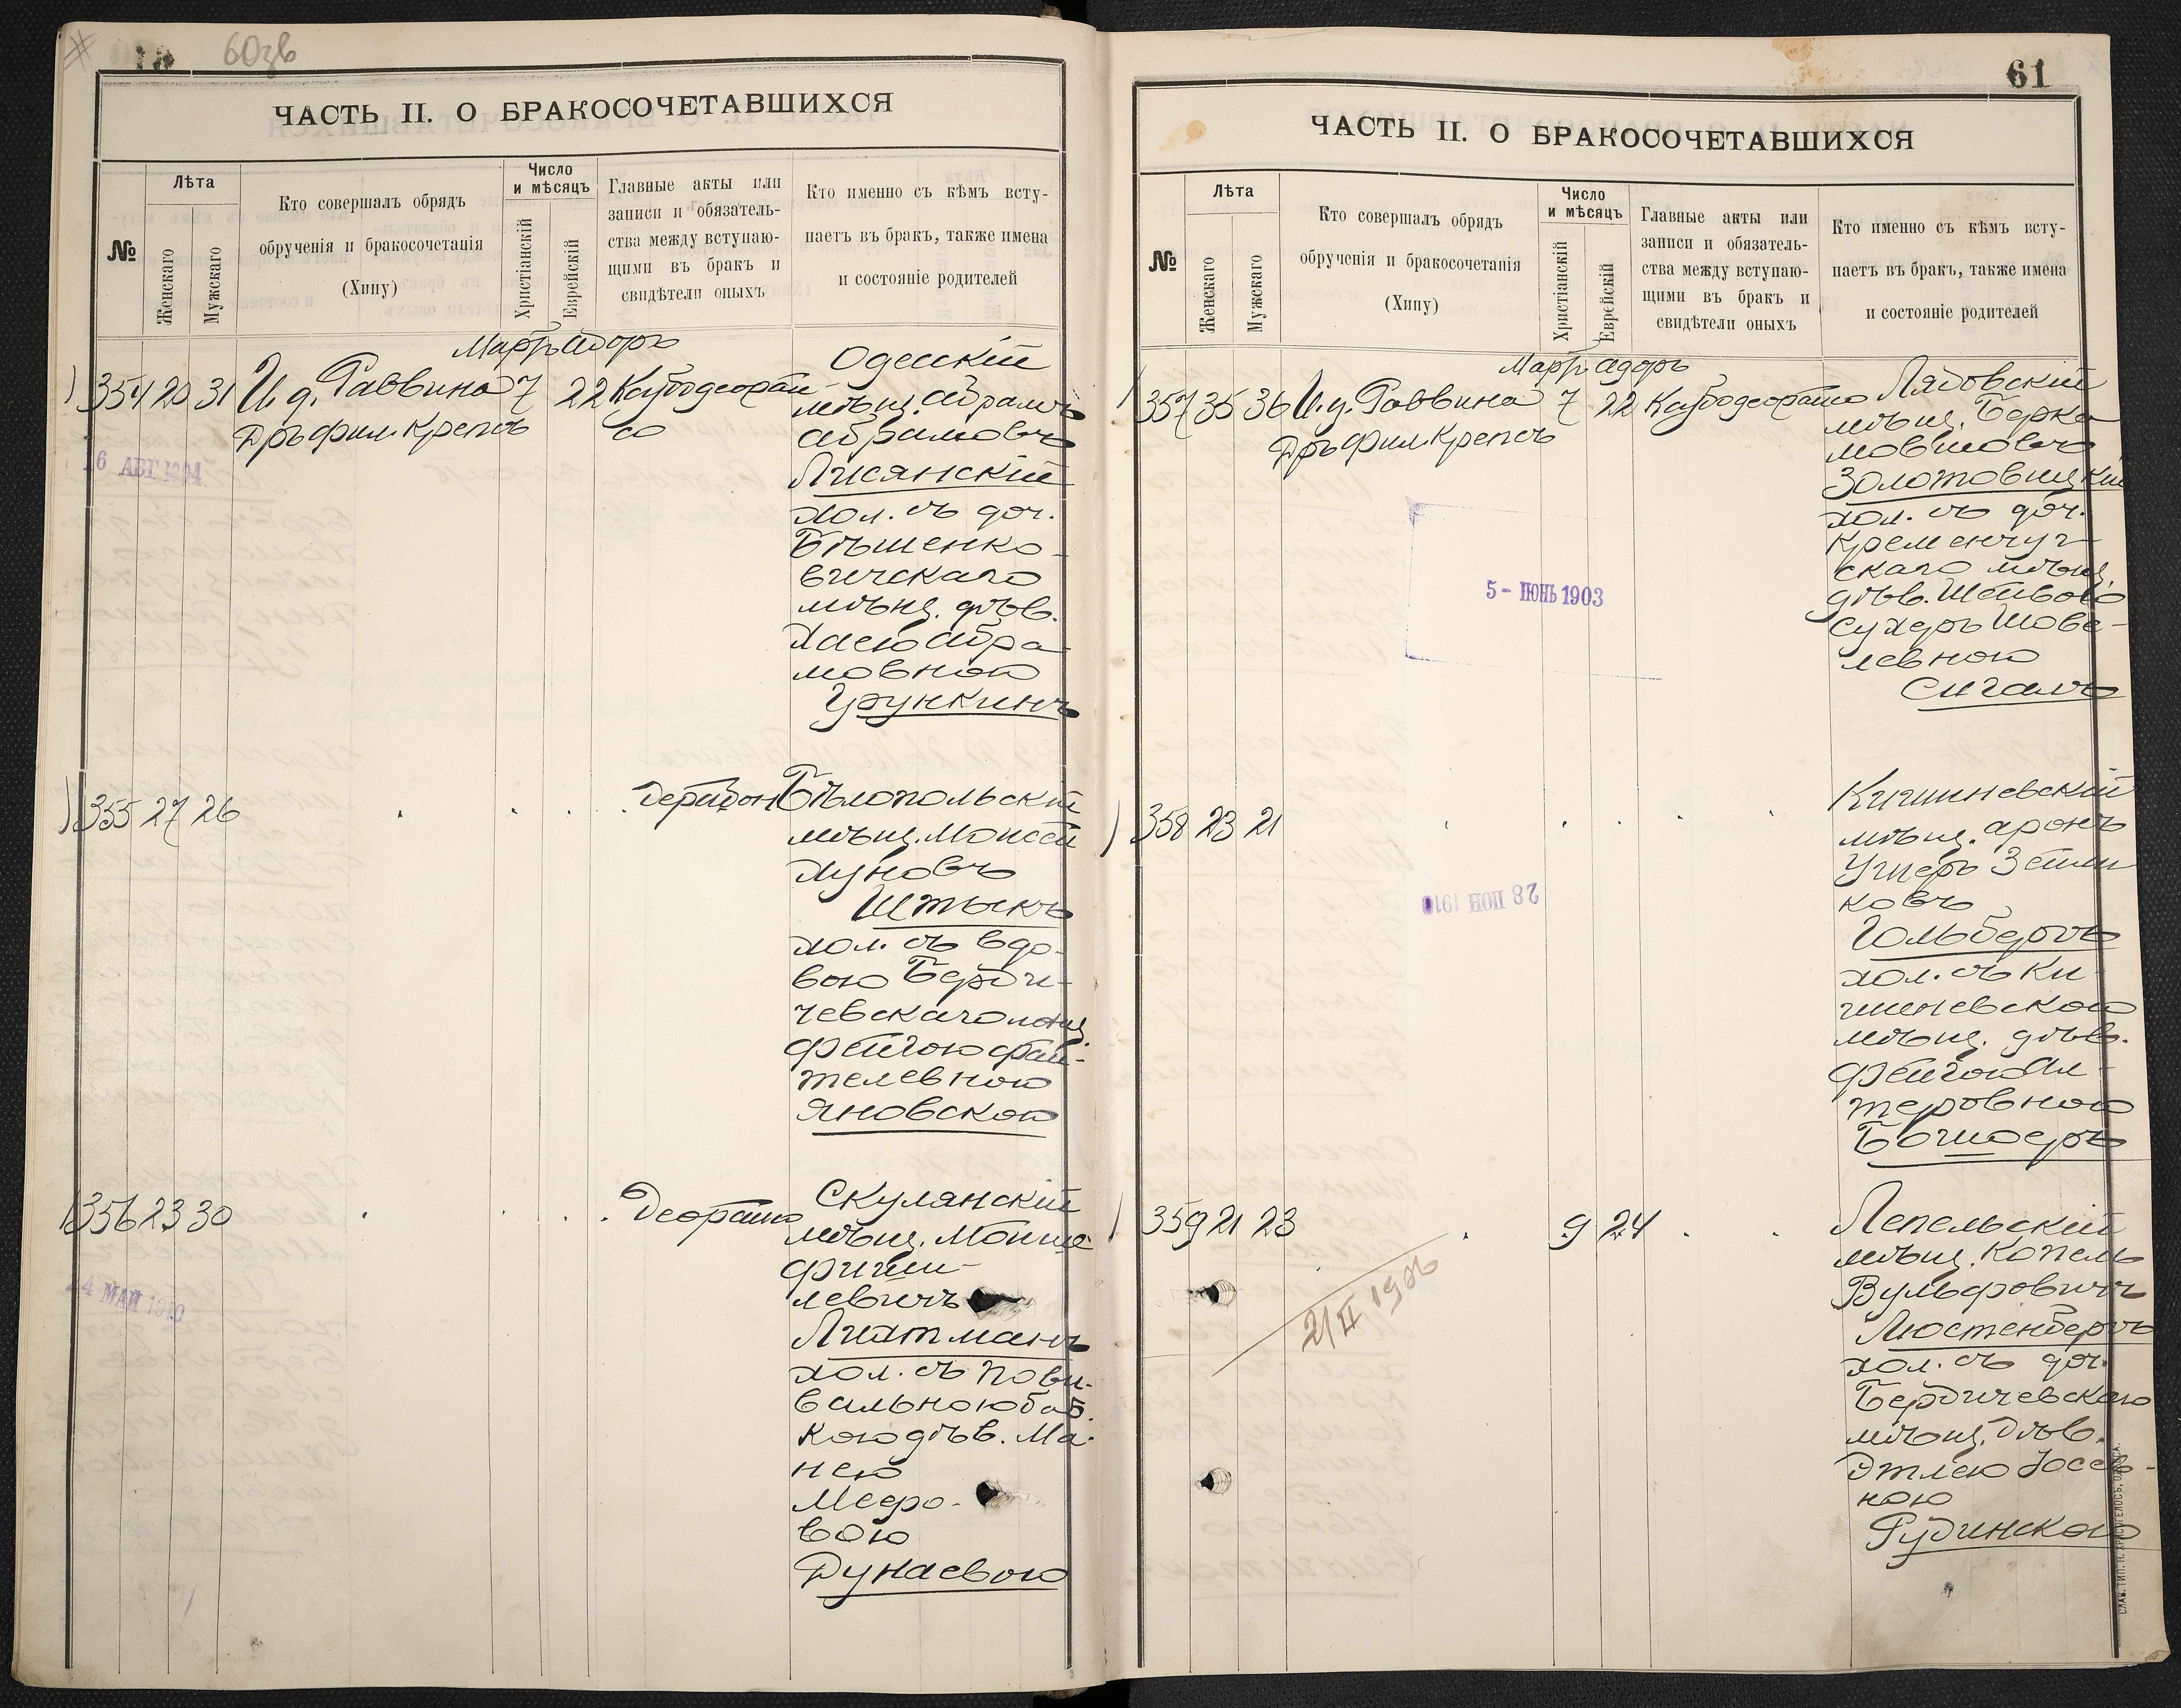 60зв
ЧАСТЬ II. О БРАКОСОЧЕТАВШИХСЯ
№
Лѣта
Женскаго
Мужскаго
Кто совершалъ обрядъ
обрученія и бракосочетанія
(Хипу)
Число
и мѣсяцъ
Христіанскій
Еврейскій
Главные акты или
записи и обязатель-
ства между вступаю-
щими въ бракъ и
свидѣтели оныхъ
Кто именно съ кѣмъ всту-
паетъ въ бракъ, также имена
и состояніе родителей
Мартъ Адоръ
354 20 31 И. д. Раввина 7 22
Д-ръ фил. Крепсъ
Одесскій
мѣщ. Абрамъ
Абрамовъ
Лисянскій
хол. съ доч.
Бѣшенко-
вичскаго
мѣщ. дѣв.
Хаею Абра-
мовною
Урункинъ
6 АВГ 1904
355 27 26
Бѣлопольскій
мѣщ. Моисей
Хуновъ
Штыкъ
хол. съ вдо-
вою Берди-
чевскаго мѣщ.
Фейгою Фай-
телевною
Яновскою
356 23 30
Скулянскій
мѣщ. Мойше
Фиши-
левичъ
Лихтманъ
хол. съ пови-
вальною баб-
кою дѣв. Ма-
нею
Мееро-
вою
Дунаевою
4 МАЙ 1910
61
ЧАСТЬ II. О БРАКОСОЧЕТАВШИХСЯ
№
Лѣта
Женскаго
Мужскаго
Кто совершалъ обрядъ
обрученія и бракосочетанія
(Хипу)
Число
и мѣсяцъ
Христіанскій
Еврейскій
Главные акты или
записи и обязатель-
ства между вступаю-
щими въ бракъ и
свидѣтели оныхъ
Кто именно съ кѣмъ всту-
паетъ въ бракъ, также имена
и состояніе родителей
Мартъ Адоръ
357 35 36 И. д. Раввина 7 22
Д-ръ фил. Крепсъ
Лядовскій
мѣщ. Берко
Мовшовъ
Золотовицкій
хол. съ доч.
Кременчуг-
скаго мѣщ.
дѣв. Шейвою
Сухеръ Шове-
левною
Сигалъ
5 - ІЮНЬ 1903
358 23 21
Кишиневскій
мѣщ. Аронъ
Ушеръ Зейли-
ковъ
Гольбергъ
хол. съ Ки-
шиневскою
мѣщ. дѣв.
Фейгою Ал-
теровною
28 ІЮН 1910
359 21 23 9 24
Лепельскій
мѣщ. Копель
Вульфовичъ
Люстенбергъ
хол. съ доч.
Бердичевскаго
мѣщ. дѣв.
Этлею Іосев-
ною
Рудинскою
2/II 1906
СЛАВ. ТИП. Н. ХРИСОГЕЛОСЪ, ОДЕССА.